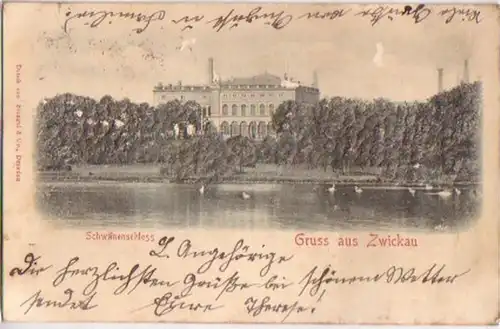 Schwanenschloss
Gruss aus Zwickau
L. Angehörige
Die herzlichsten Grüße bei schönem Wetter
sendet Eure Therese!
Druck von Stengel & Co., Dresden